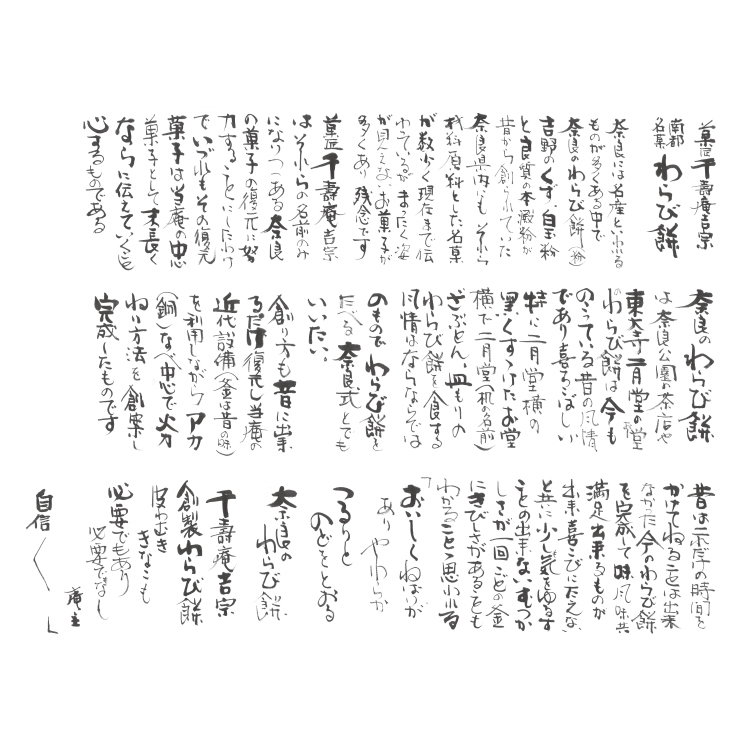 菓匠千壽庵吉宗
南都
名菓 わらび餅
奈良には名産といわれる
ものが多くある中で
奈良のわらび餅(粉)
吉野のくず、白玉粉
と良質の本澱粉が
昔から創られていた
奈良県内にも それらを
材料原料とした名菓
が数少く現在まで伝
わっているが まったく姿
が見えないお菓子が
多くあり 残念です
菓匠千壽庵吉宗
はそれらの名前のみ
になりつゝある奈良
の菓子の復元に努
力することにしたわけ
でいづれもその復元
菓子は当庵の中心
菓子として末長く
ならに伝えていくことを
心するものである
奈良のわらび餅
は奈良公園の茶店や
東大寺二月堂の堂
のわらび餅は今も
のこっている昔の風情
であり喜ろこばしい
特に二月堂横の
黒くすゝけたお堂
横で二月堂(机の名前)
ざぶとん、皿もりの
わらび餅を食する
風情はならならでは
のものでわらび餅を
たべる奈良式とでも
いいたい。
創り方も昔に出来
るだけ復元し当庵の
近代設備(釜は昔の味)
を利用しながら アカ
(銅)なべ中心で火力
ねり方法を創案し
完成したものです
昔はこれだけの時間を
かけてねることは出来
なかった今のわらび餅
を完成して味、風味共
満足出来るものが
出来喜こびにたえない
と共に少し気をゆるす
ことの出来ないむつか
しさが一回ごとの釜
にきびしさがあることも
わかることゝ思われる
「おいしくねばりが
ありやわらか
つるりと
のどをとおる
奈良の
わらび餅
千壽庵吉宗
創製わらび餅
皮むき
きなこも
必要でもあり
必要でなし
庵主
自信く 」